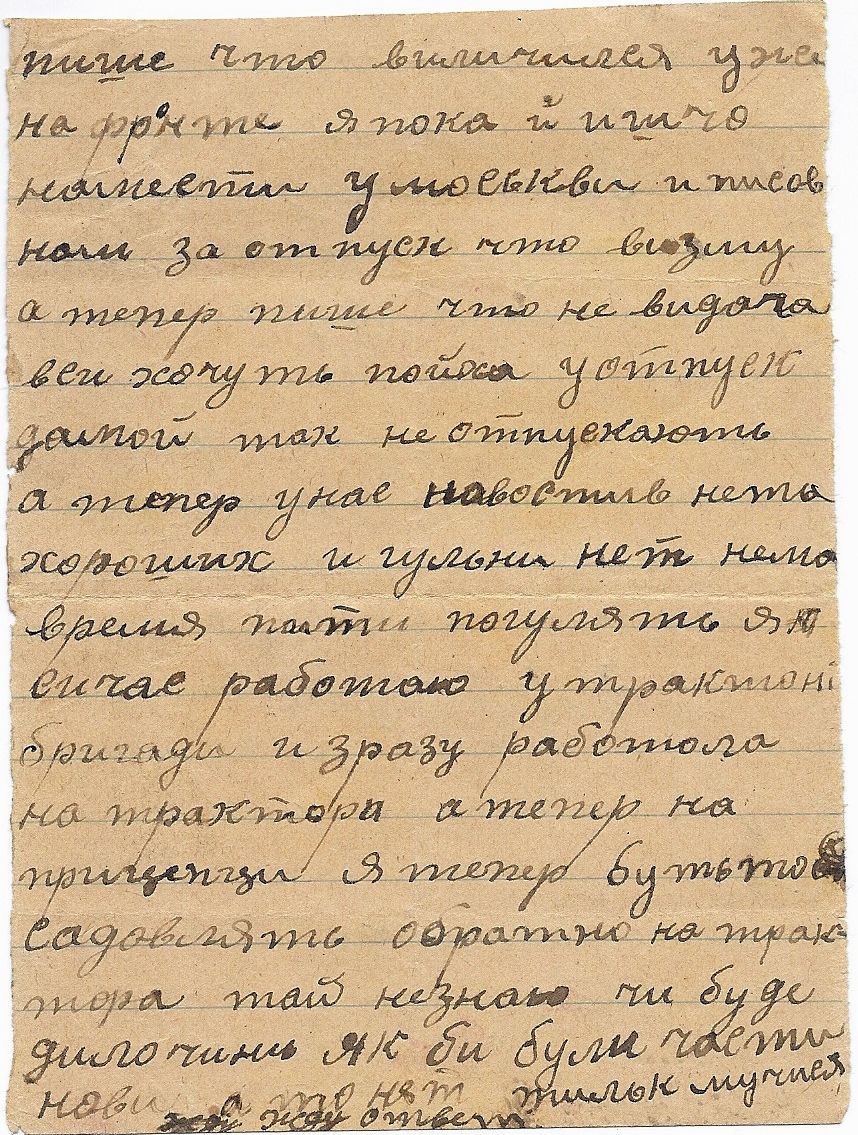 пише что виличился уже
на фронте я пока й ишчо
намести у моськви и писов
нам за отпуск что визму
а тепер пише что не видача
вси хочуть пойха у отпуск
дамой так не отпускають
а тепер унас навостив нета
хороших и гульни нет нема
время пити погулять я
сичас работаю у трактоні
бригади и зразу работала
на трактори а тепер на
прицепци я тепер буть то
садовлять обратно на трак-
тора тай незнаю чи буде
дило чинь як би були части
нови а то нет тильк мучися
жду жду ответ